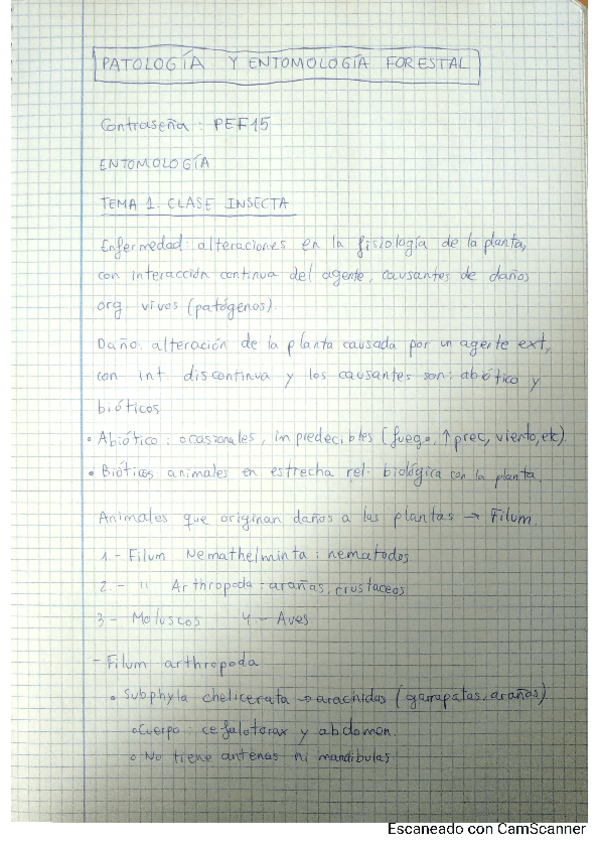 PATOLOGÍA Y ENTOMOLOGÍA FORESTAL
Contraseña: PEF15
ENTOMOLOGÍA
TEMA 1. CLASE INSECTA
Enfermedad: alteraciones en la fisiología de la planta,
con interacción continua del agente, causantes de daños
org. vivos (patógenos).
Daño: alteración de la planta causada por un agente ext,
con int. discontinua y los causantes son: abiótico y
bióticos
• Abiótico: ocasionales, impredecibles (fuego, ↑prec, viento, etc).
• Bióticos: animales en estrecha rel. biológica con la planta.
Animales que originan daños a las plantas → Filum.
1.- Filum Nemathelminta: nematodos.
2.- " Arthropoda: arañas, crustaceos
3- Moluscos 4- Aves
- Filum arthropoda
• Subphyla chelicerata → arachidas (garrapatas, arañas).
o Cuerpo: cefalotorax y abdomen.
o No tiene antenas ni mandibulas
Escaneado con CamScanner